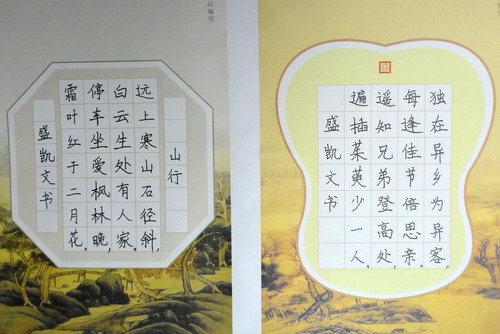 山行
远上寒山石径斜，
白云生处有人家。
停车坐爱枫林晚，
霜叶红于二月花。
盛凯文书
独在异乡为异客，
每逢佳节倍思亲。
遥知兄弟登高处，
遍插茱萸少一人。
盛凯文书